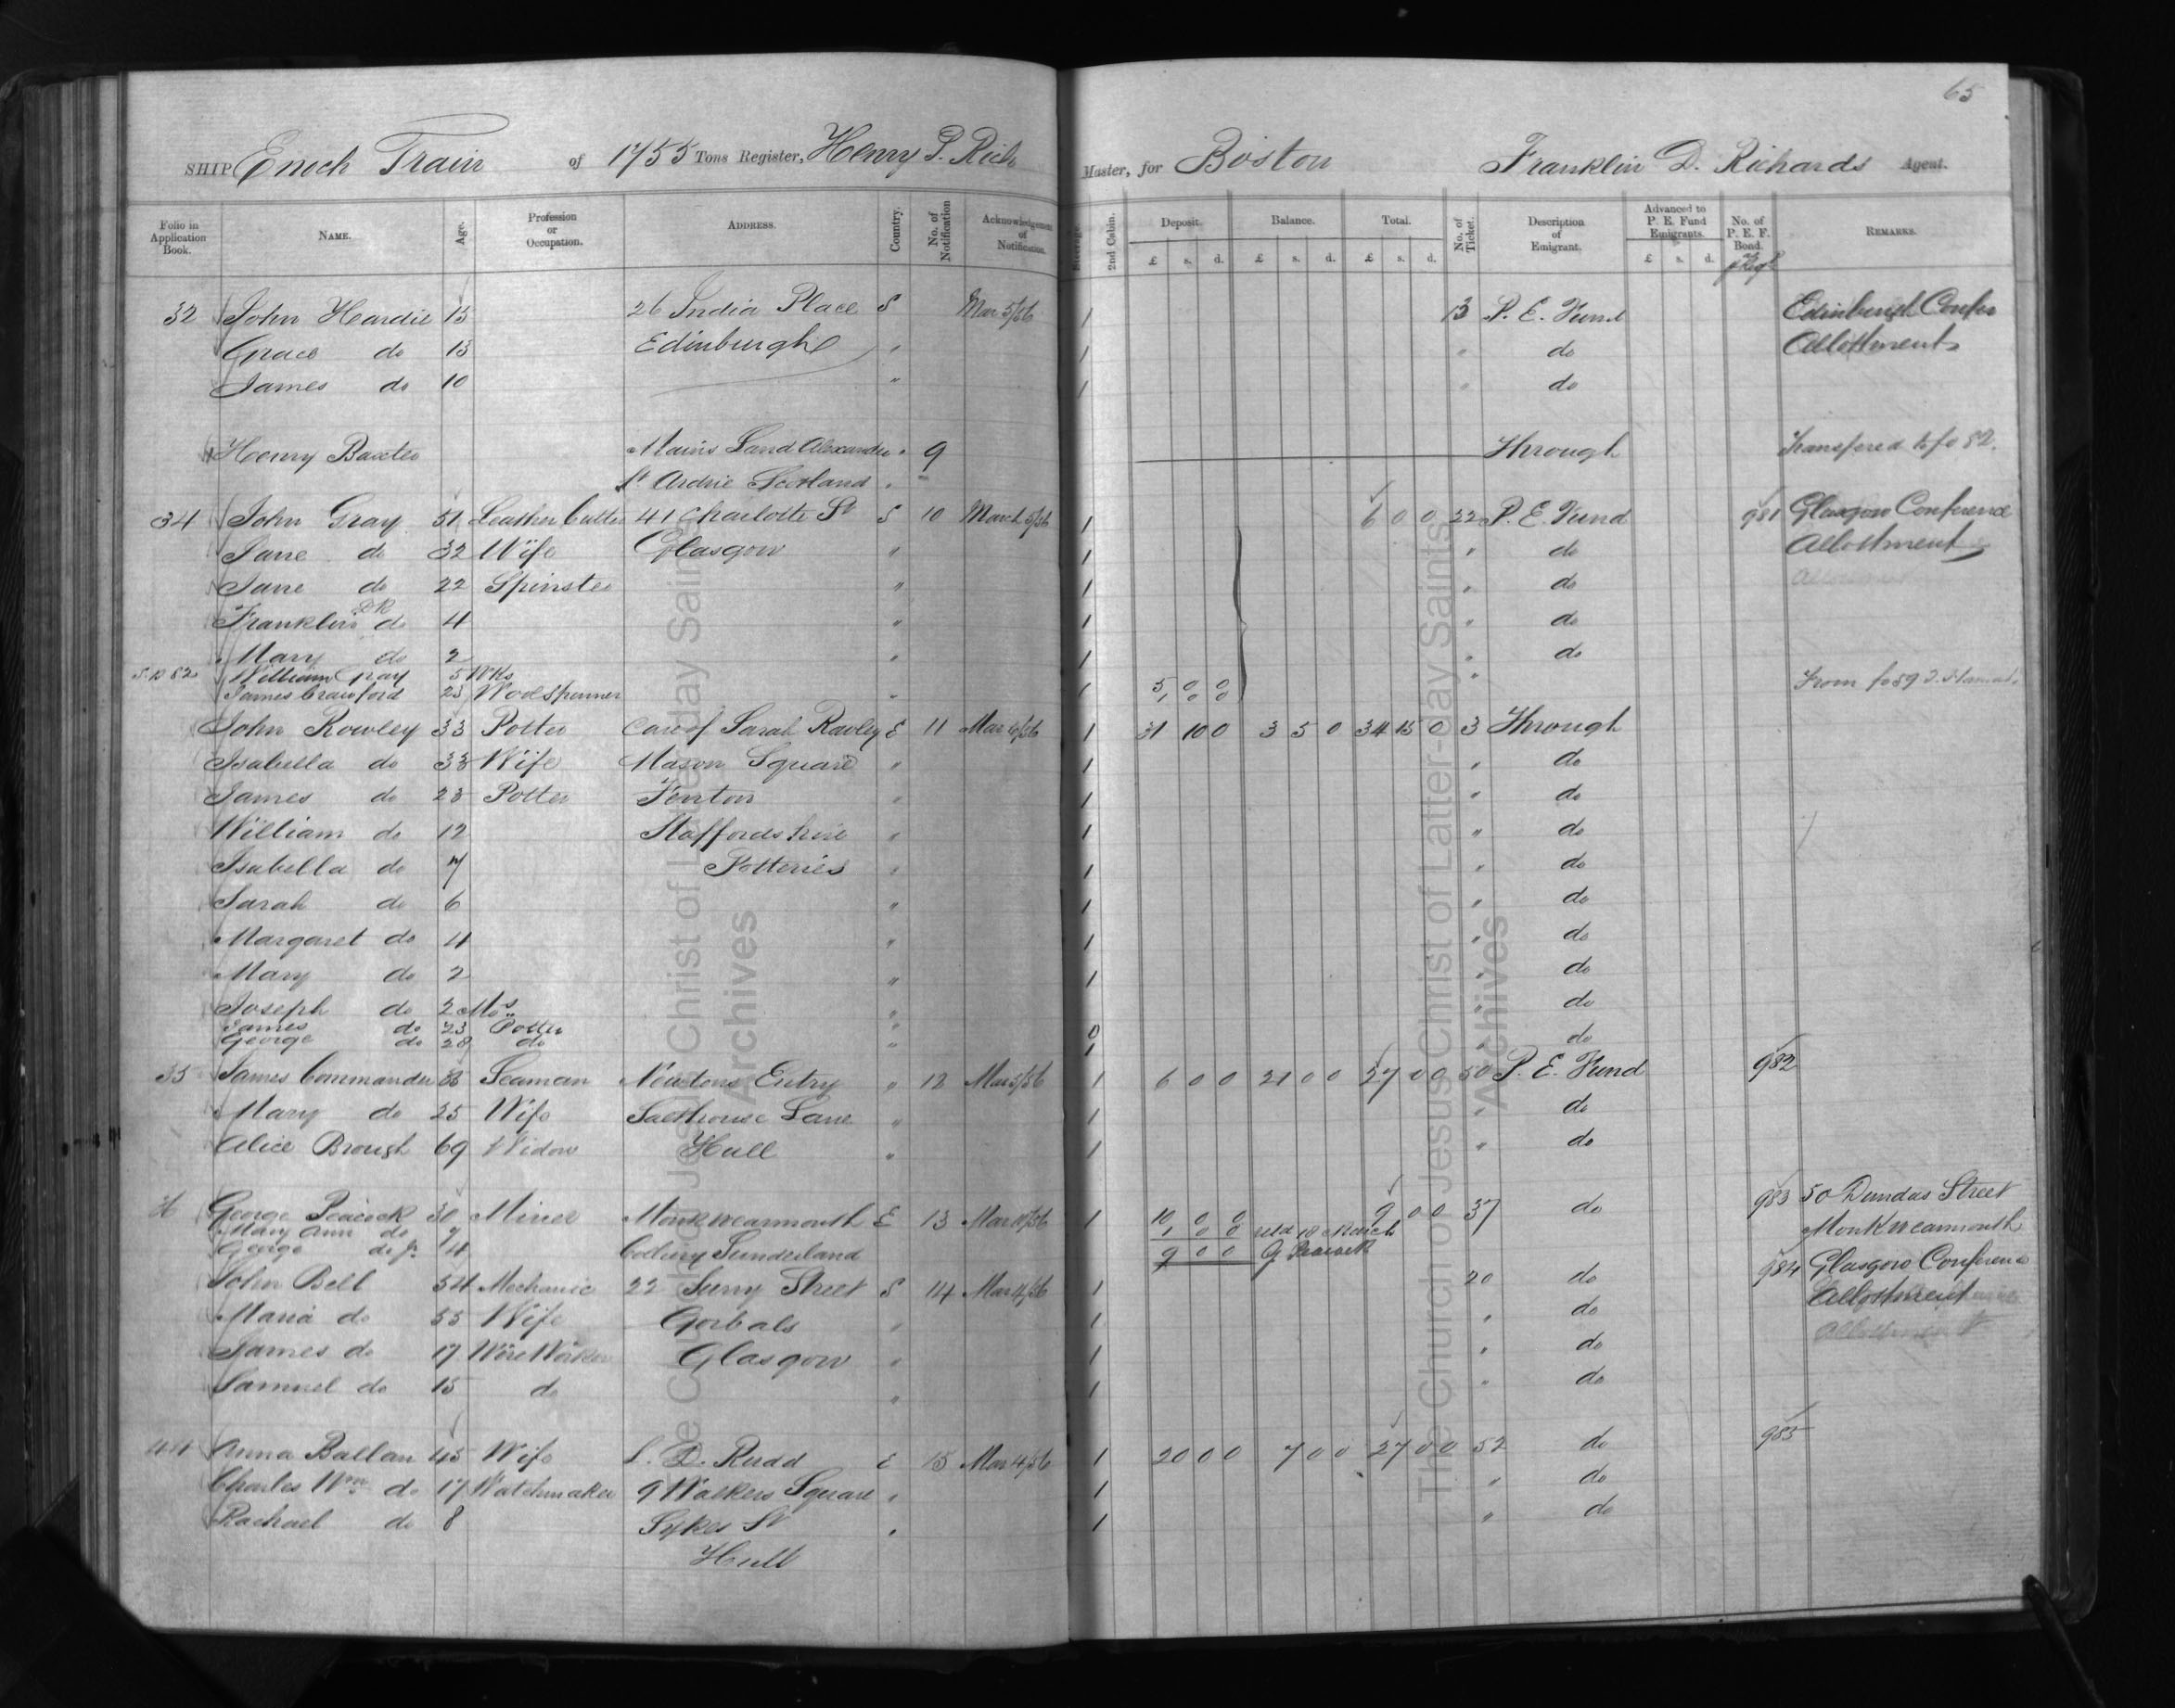 65
SHIP Enoch Train of 1755 Tons Register, Henry P. Rich Master, for Boston Franklin D. Richards Agent.
Folio in Application Book. NAME. Age. Profession or Occupation. ADDRESS. Country. No. of Notification Acknowledgement of Notification. Steerage. 2nd Cabin. Deposit. Balance. Total. No. of Ticket. Description of Emigrant. Advanced to P. E. Fund Emigrants. No. of P. E. F. Bond. REMARKS.
£ s. d. £ s. d. £ s. d. £ s. d.
32 John Heardie 15 26 India Place S Mar 5/56 1 13 P. E. Fund Edinburgh Confer
Grace do 13 Edinburgh " 1 " do Allottment
James do 10 " 1 " do
Henry Baxter Mains Land Alexander " 9 Through Transfered to fo 82.
St Ardrie Scotland "
34 John Gray 51 Leather Cutter 41 Charlotte St S 10 March 5/56 1 6 0 0 22 P. E. Fund 981 Glasgow Conference
Jane do 32 Wife Glasgow " 1 " do Allottment
Jane do 22 Spinster " 1 " do
Franklin DR do 4 " 1 " do
Mary do 2 " 1 " do
William Gray 5 Wks 5 0 0 "
James Crawford 25 Wool Spinner " 1 1 0 0 From fo 59
John Rowley 33 Potter Care of Sarah Rowley E 11 Mar 6/56 1 31 10 0 3 5 0 34 15 0 3 Through
Isabella do 33 Wife Mason Square " 1 " do
James do 23 Potter Fenton " 1 " do
William do 12 Staffordshire " 1 " do
Isabella do 7 Potteries " 1 " do
Sarah do 6 " 1 " do
Margaret do 4 " 1 " do
Mary do 2 " 1 " do
Joseph do 2 Mos " " do
James do 23 Potter " 0
George do 28 do " 1 " do
35 James Commander 33 Seaman Newtons Entry " 12 Mar 5/56 1 6 0 0 21 0 0 27 0 0 50 P. E. Fund 982
Mary do 25 Wife Salthouse Lane " 1 " do
Alice Brough 69 Widow Hull " 1 " do
George Peacock 30 Miner Monkwearmouth E 13 Mar 10/56 1 10 0 0 9 0 0 37 do 983 50 Dundas Street
Mary Ann do 7 1 0 0 retd 18 March Monkwearmouth
George do Jr 4 Colliery Sunderland 9 0 0 G Peacock
John Bell 54 Mechanic 22 Surry Street S 14 Mar 4/56 1 20 do 984 Glasgow Conference
Maria do 55 Wife Gorbals " 1 " do Allottment
James do 17 Wire Worker Glasgow " 1 " do
Samuel do 15 do " 1 " do
44 Anna Ballan 45 Wife S. D. Rudd E 15 Mar 4/56 1 20 0 0 7 0 0 27 0 0 52 do 985
Charles Wm do 17 Watchmaker 9 Walkers Square " 1 " do
Rachael do 8 Sykes St " 1 " do
Hull
The Church of Jesus Christ of Latter-day Saints
Archives
The Church of Jesus Christ of Latter-day Saints
Archives